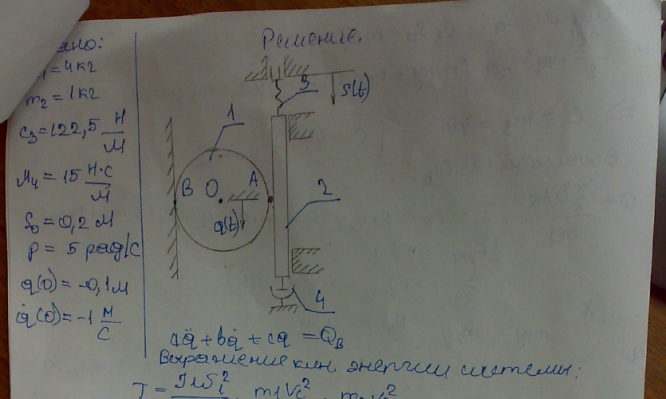 ано:
= 4 кг
m₂ = 1 кг
c₃ = 122,5 Н/М
μ₄ = 15 Н·с/М
S₀ = 0,2 м
p = 5 рад/с
q(0) = -0,1 м
q̇(0) = -1 м/с
Решение.
3
S(t)
1
B
O
A
q(t)
2
4
aq̈ + bq̇ + cq = Q_B
Выражение кин. энергии системы:
T =